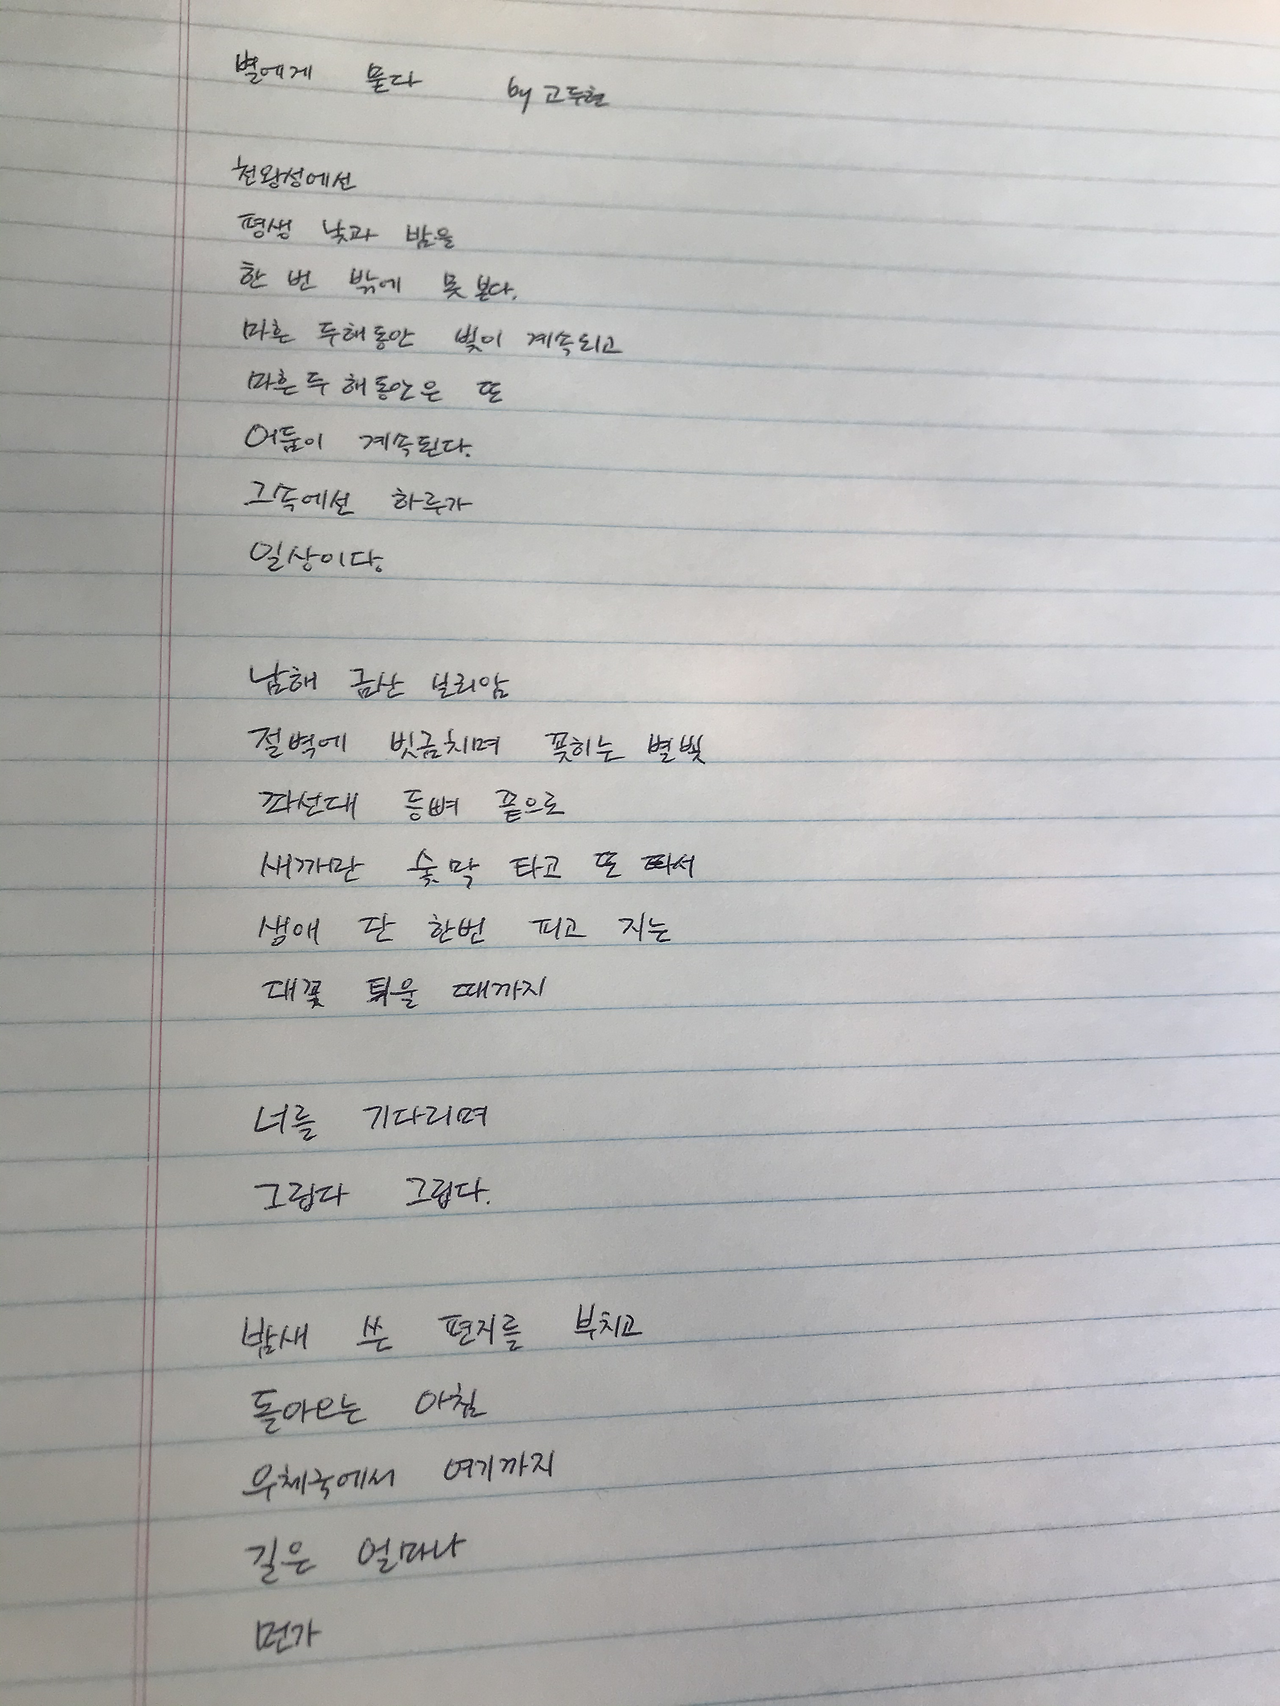 별에게 묻다 by 고두현
천왕성에선
평생 낮과 밤을
한 번 밖에 못 본다.
마흔 두해동안 빛이 계속되고
마흔 두 해 동안은 또
어둠이 계속된다.
그속에선 하루가
일상이다.
남해 금산 보리암
절벽에 빗금치며 꽂히는 별빛
좌선대 등뼈 끝으로
새까만 숯막 타고 또 타서
생애 단 한번 피고 지는
대꽃 틔울 때까지
너를 기다리며
그립다 그립다.
밤새 쓴 편지를 부치고
돌아오는 아침
우체국에서 여기까지
길은 얼마나
먼가